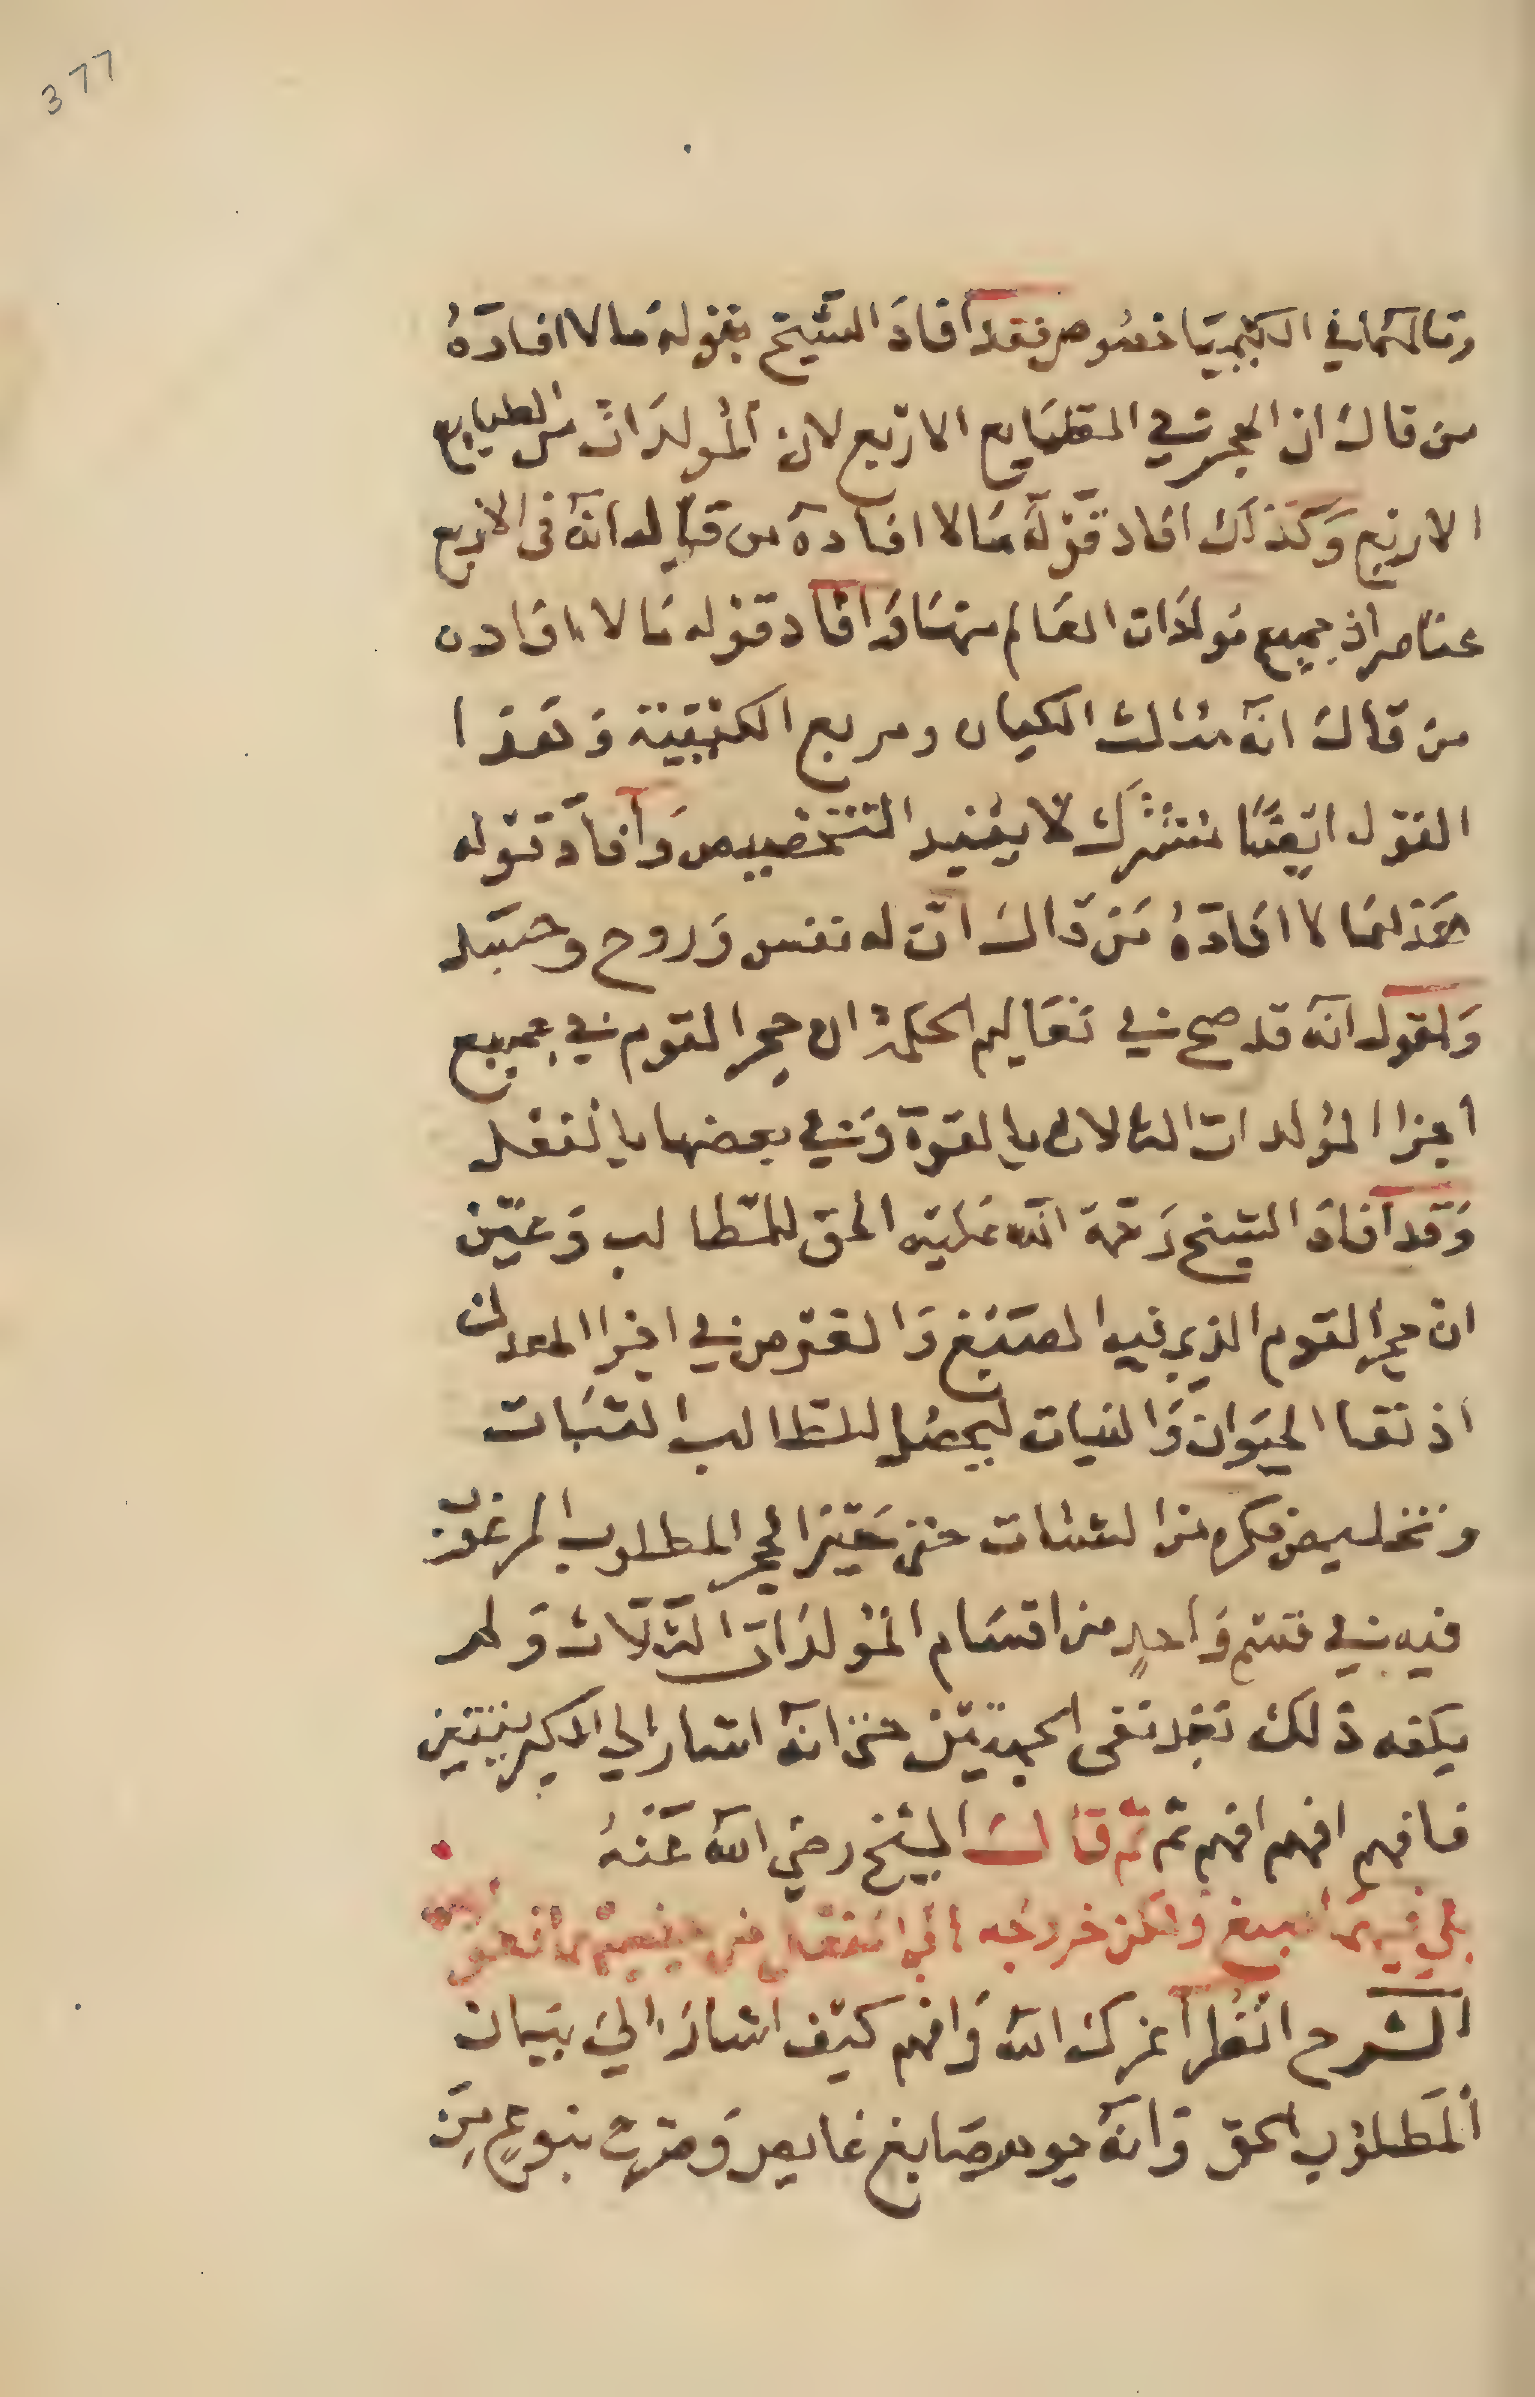 377
وقالها في الكيميا خصوص فقد أفادَ الشيخ بقوله مالا افادَهُ
من قال ان الحجر في الطبايع الاربع لان المُولدَات من الطبايع
الاربع وَكذلك افاد قَوْله مَا لا افادة من قال انه فى الاربع
عناصر اذ جميع مَولدَات العَالم منهَا وَافاد قوله مَا لا افاده
من قال انه مثلث الكيان ومربع الكيفية وَهذا
القول ايضًا مشترك لا يفيد التخصيص وَأفادَ قوله
هَذا مَا لا افادَهُ مَن قال ان له نفس وَروح وجسَد
وَلقول انه قد صح في تعَاليم الحكمة ان حجر القوم في جميع
اجزا المؤلدات الثلاث بالقوة وَفي بعضها بالفعل
وَقد أفادَ الشيخ رَحمَة الله عَليه الحق للطالب وَعيّن
ان حجر القوم الذي فيه الصَبْغ وَالغوص في اجزا المعدن
اذ نفا الحيَوان وَالنبات ليحصُل للطالب الثبَات
وتخليص فكره من الشتات حتى حَيّز الحجر المطلوب المرغوب
فيه في قسْم وَاحدٍ من اقسَام المُولدَات الثلاث وَلم
يكفه ذلك بَعد نفى الجهتين حتى انه اشار الي الكبريتين
فافهم افهم افهم ثم ثم قال الشيخ رضي الله عَنْهُ
بلي فيهما صبغ ولكن خروجه الى الفعل من
الشرح انظر أعزك الله وَافهم كيف اشارَ اليَ بيَان
المَطلوب الحق وَانه هو صَابغ غايص وَصرح بنوعٍ مِنَ